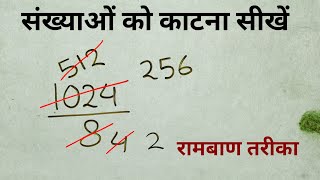 संख्याओं को काटना सीखें
512 256
1024
8 4 2
रामबाण तरीका